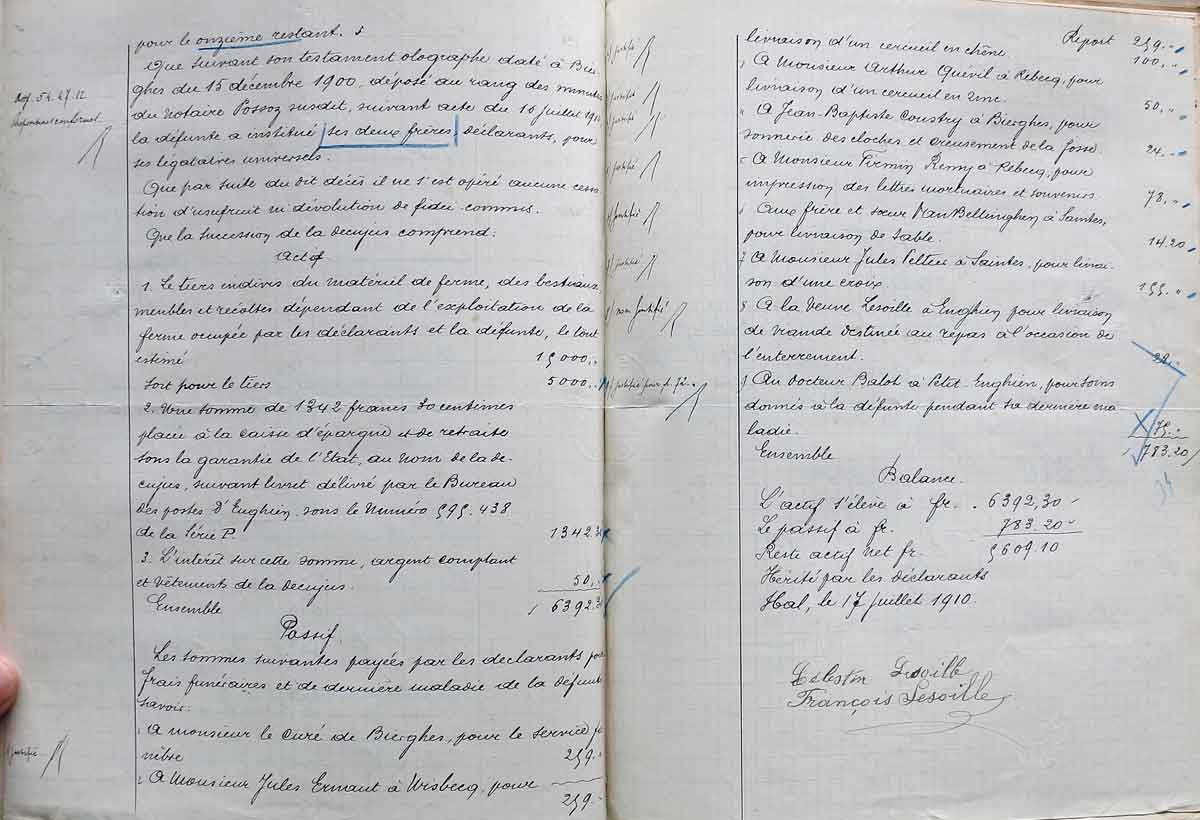 pour le onzième restant. s
Que suivant son testament olographe daté à Bier-
ghes du 15 décembre 1900, déposé au rang des minutes
du Notaire Possoz susdit, suivant acte du 10 juillet 19
la défunte a institué ses deux frères, déclarants, pour
ses légataires universels.
Que par suite du dit décès il ne s'est opéré aucune ces-
sion d'usufruit ni dévolution de fidei commis.
Que la succession de la decujus comprend:
Actif
1. Le tiers indivis du matériel de ferme, des bestiaux
meubles et récoltes dépendant de l'exploitation de la
ferme occupée par les déclarants et la défunte, le tout
estimé 15000,-
Soit pour le tiers 5000.-
2. Une somme de 1342 francs 30 centimes
placée à la caisse d'épargne et de retraite
sous la garantie de l'Etat, au nom de la de-
cujus, suivant livret délivré par le Bureau
des postes d'Enghien, sous le Numéro 595.438
de la Série P. 1342.30
3. L'intérêt sur cette somme, argent comptant
et vêtements de la decujus. 50,-
Ensemble 6392.30
Passif.
Les sommes suivantes payées par les déclarants pour
frais funéraires et de dernière maladie de la défunte
savoir:
A monsieur le Curé de Bierghes, pour le service fu-
nèbre 259.-
2 A Monsieur Jules Ernaut à Wisbecq, pour
259.-
justifié
Report 259.-
livraison d'un cercueil en chêne. 100,-
A Monsieur Arthur Quévil à Rebecq, pour
livraison d'un cercueil en zinc. 50,-
A Jean-Baptiste Coustry à Bierghes, pour
sonnerie des cloches et creusement de la fosse 24.-
A Monsieur Firmin Remy à Rebecq, pour
impression des lettres mortuaires et souvenirs 78,-
Aux frère et sœur Van Bellinghen à Saintes,
pour livraison de sable. 14.20
7 A Monsieur Jules Peltier à Saintes, pour livrai-
son d'une croix. 155.-
8 A la Veuve Lesoille à Enghien pour livraison
de viande destinée au repas à l'occasion de
l'enterrement. 28.-
9 Au Docteur Balot à Petit-Enghien, pour soins
donnés à la défunte pendant sa dernière ma-
ladie. 75.-
Ensemble 783.20
Balance.
L'actif s'élève à fr. 6392,30
Le passif à fr. 783.20
Reste actif net fr. 5609.10
Hérité par les déclarants
Hal, le 17 juillet 1910.
justifié
justifié
justifié
justifié
justifié
justifié
non justifié
Célestin Lesoille
François Lesoille